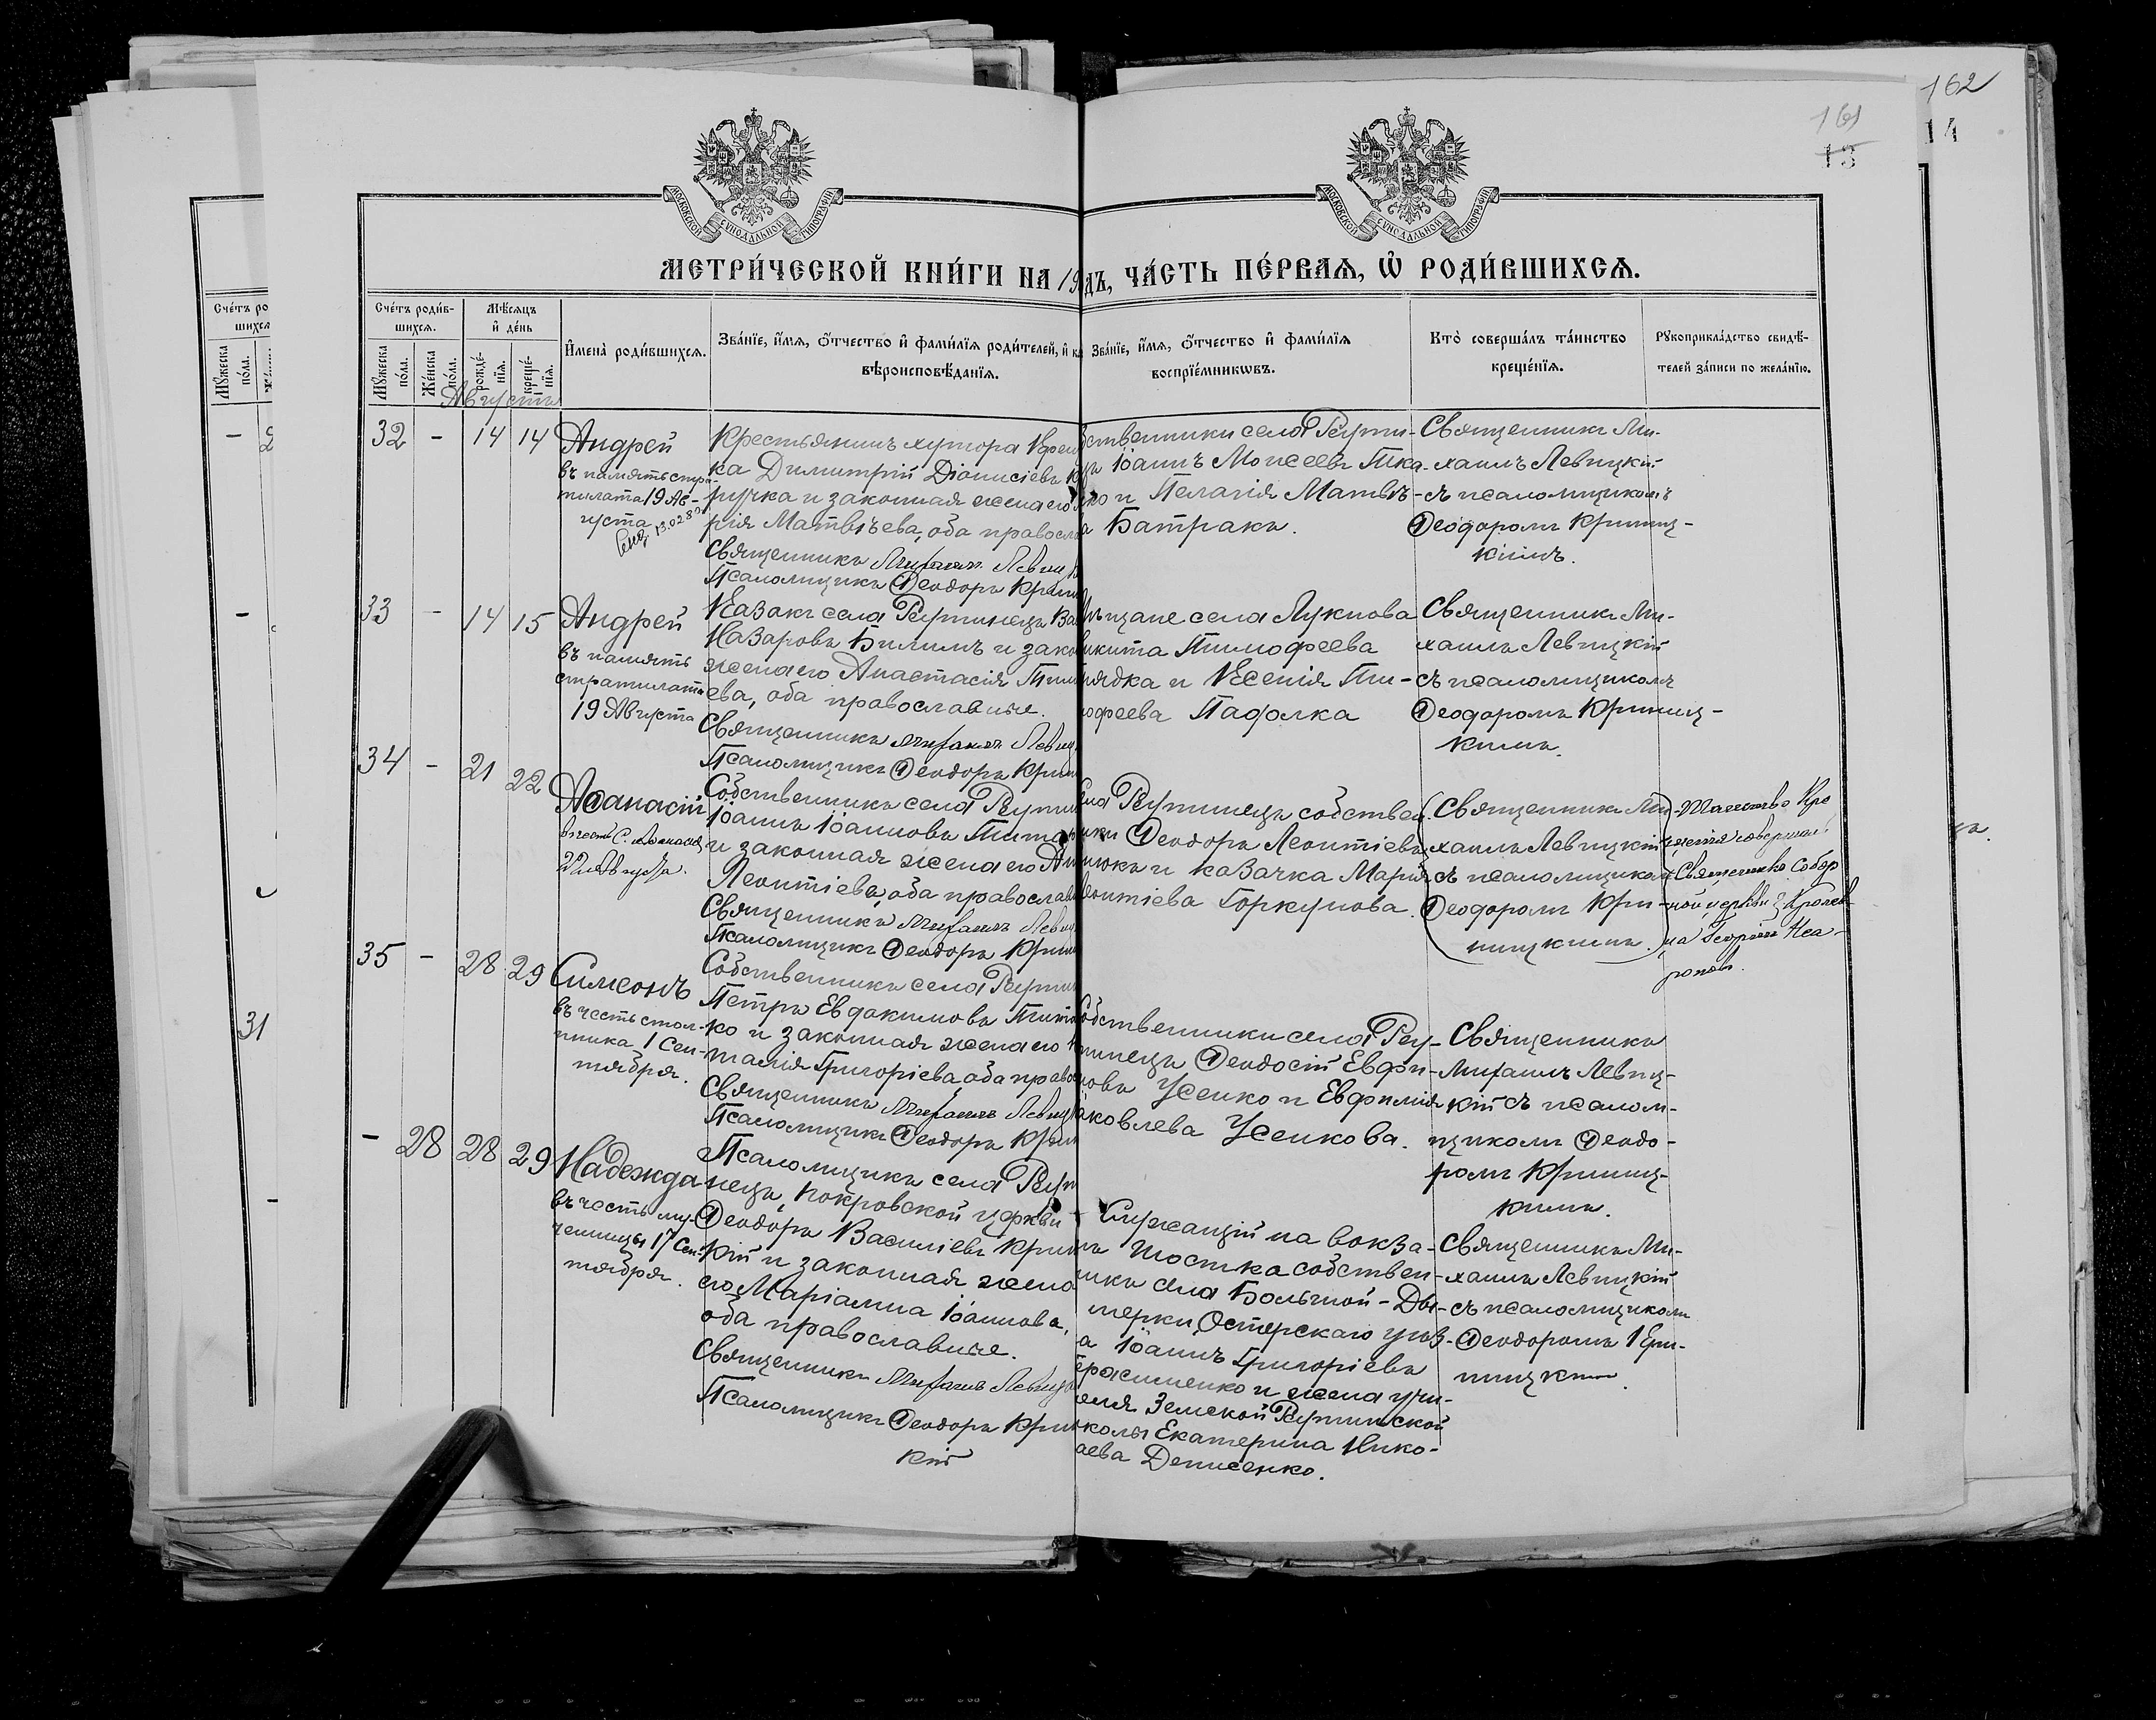 162
14
161
13
МОСКОВСКОЙ СУНОДАЛЬНОЙ ТИПОГРАФІИ
МОСКОВСКОЙ СУНОДАЛЬНОЙ ТИПОГРАФІИ
МЕТРИ́ЧЕСКОЙ КНИ́ГИ НА 19
ДЪ, ЧА́СТЬ ПЕ́РВАЯ, Ѽ РОДИ́ВШИХСЯ.
Сче́тъ ро
шихся
Мꙋ́жеска по́ла.
Сче́тъ роди́в-
шихся.
Мꙋ́жеска по́ла.
Же́нска по́ла.
Мѣ́сяцъ
и҆ де́нь
рожде́-
нїя.
креще́-
нїя.
И҆мена̀ роди́вшихся.
Зва́нїе, и҆́мя, ѻ҆́тчество и҆ фами́лїя роди́телей, и҆ ка
вѣроисповѣ́данїя.
Зва́нїе, и҆́мя, ѻ҆́тчество и҆ фами́лїя
воспрїе́мникѡвъ.
Кто̀ соверша́лъ та́инство
креще́нїя.
Рꙋкоприкла́дство свидѣ́-
телей за́писи по жела́нїю.
Августъ
32 - 14 14
Андрей
въ память стра-
тилата 19 Ав-
густа
Крестьянинъ хутора
ка Димитрій Діонисіевъ
ручка и законная жена его
рія Матвѣева, оба правосла
Священникъ Михаилъ Левиц
Псаломщикъ Ѳеодоръ Крини
ственники села Реути-
ъ Іоаннъ Моисеевъ Тка-
ко и Пелагія Матвѣ-
а Батракъ.
Священникъ Ми-
хаилъ Левицкій
съ псаломщикомъ
Ѳеодоромъ Криниц-
кимъ.
33 - 14 15
Андрей
въ память
стратилата
19 Августа
Казакъ села Реутинецъ Ва
Назаровъ Билимъ и зако
жена его Анастасія Тим
ева, оба православные.
Священникъ Михаилъ Левиц
Псаломщикъ Ѳеодоръ Крин
ѣщане села Лукнова
икита Тимофеевъ
рядка и Ксенія Ти-
офеева Падалка
Священникъ Ми-
хаилъ Левицкій
съ псаломщикомъ
Ѳеодоромъ Криниц-
кимъ.
34 - 21 22
Аѳанасій
22 Августа.
Собственникъ села Реути
Іоаннъ Іоанновъ Тита
и законная жена его Ан
Леонтіева, оба православ
Священникъ Михаилъ Левиц
Псаломщикъ Ѳеодоръ Крин
ела Реутинецъ собствен-
ики Ѳеодоръ Леонтіевъ
нюкъ и казачка Марія
еонтіева Горкунова.
(Священникъ Ми-
хаилъ Левицкій
съ псаломщикомъ
Ѳеодоромъ Кри-
ницкимъ.)
Таинство Кре
щенія совершалъ
Священникъ Собор
ной церкви г. Кролев-
ца Георгій
31
35 - 28 29
Симеонъ
въ честь столп-
ника 1 Сен-
тября.
Собственникъ села Реути
Петръ Евдокимовъ Тита
ко и законная жена его
талія Григоріева, оба право
Священникъ Михаилъ Левиц
Псаломщикъ Ѳеодоръ Крин
обственники села Реу-
тинецъ Ѳеодосій Евфи-
мовъ Усенко и Евфимія
аковлева Усенкова.
Священникъ
Михаилъ Левиц-
кій съ псалом-
щикомъ Ѳеодо-
ромъ Криниц-
кимъ.
- 28 28 29
Надежда
въ честь му-
ченицы 17 Сен-
тября.
Псаломщикъ села Реут
нецъ, Покровской церкви
Ѳеодоръ Василіевъ Крин
кій и законная жена
его Маріамна Іоаннова,
оба православные.
Священникъ Михаилъ Левицк
Псаломщикъ Ѳеодоръ Крин
кій
Служащій на вокза-
лѣ Шостка собствен-
никъ села Большой-Ды-
мерки, Остерскаго уѣз-
а Іоаннъ Григоріевъ
ерасименко и жена учи-
еля Земской Реутинской
колы Екатерина Нико-
аева Денисенко.
Священникъ Ми-
хаилъ Левицкій
съ псаломщикомъ
Ѳеодоромъ Кри-
ницким.